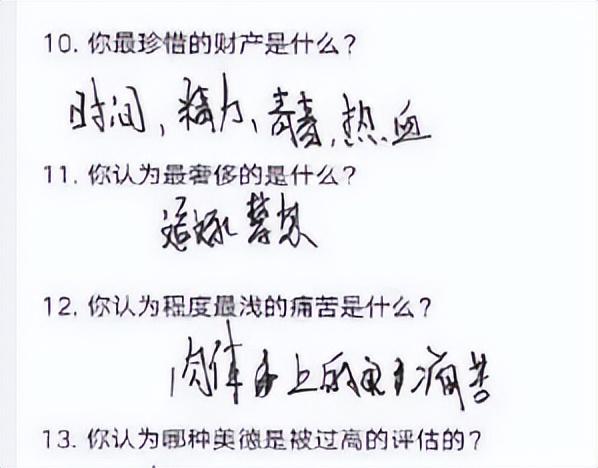 10. 你最珍惜的财产是什么？
时间，精力、青春，热血
11. 你认为最奢侈的是什么？
追 梦想
12. 你认为程度最浅的痛苦是什么？
肉体上的 痛苦
13. 你认为哪种美德是被过高的评估的？